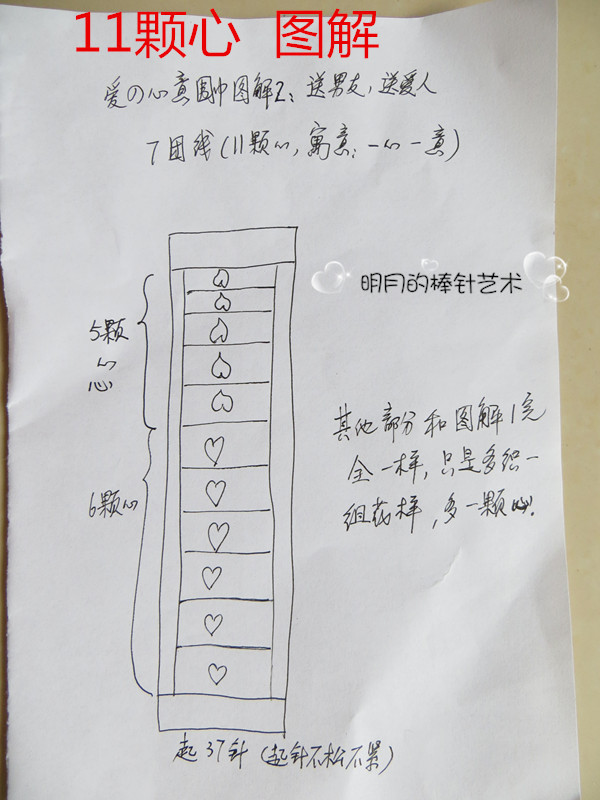 11颗心 图解
爱の心意围巾图解2:送男友,送爱人
7团线(11颗心,寓意:一心一意)
明月的棒针艺术
5颗
心
其他部分和图解1完
全一样,只是多织一
组花样,多一颗心.
6颗心
起37针(起针不松不紧)